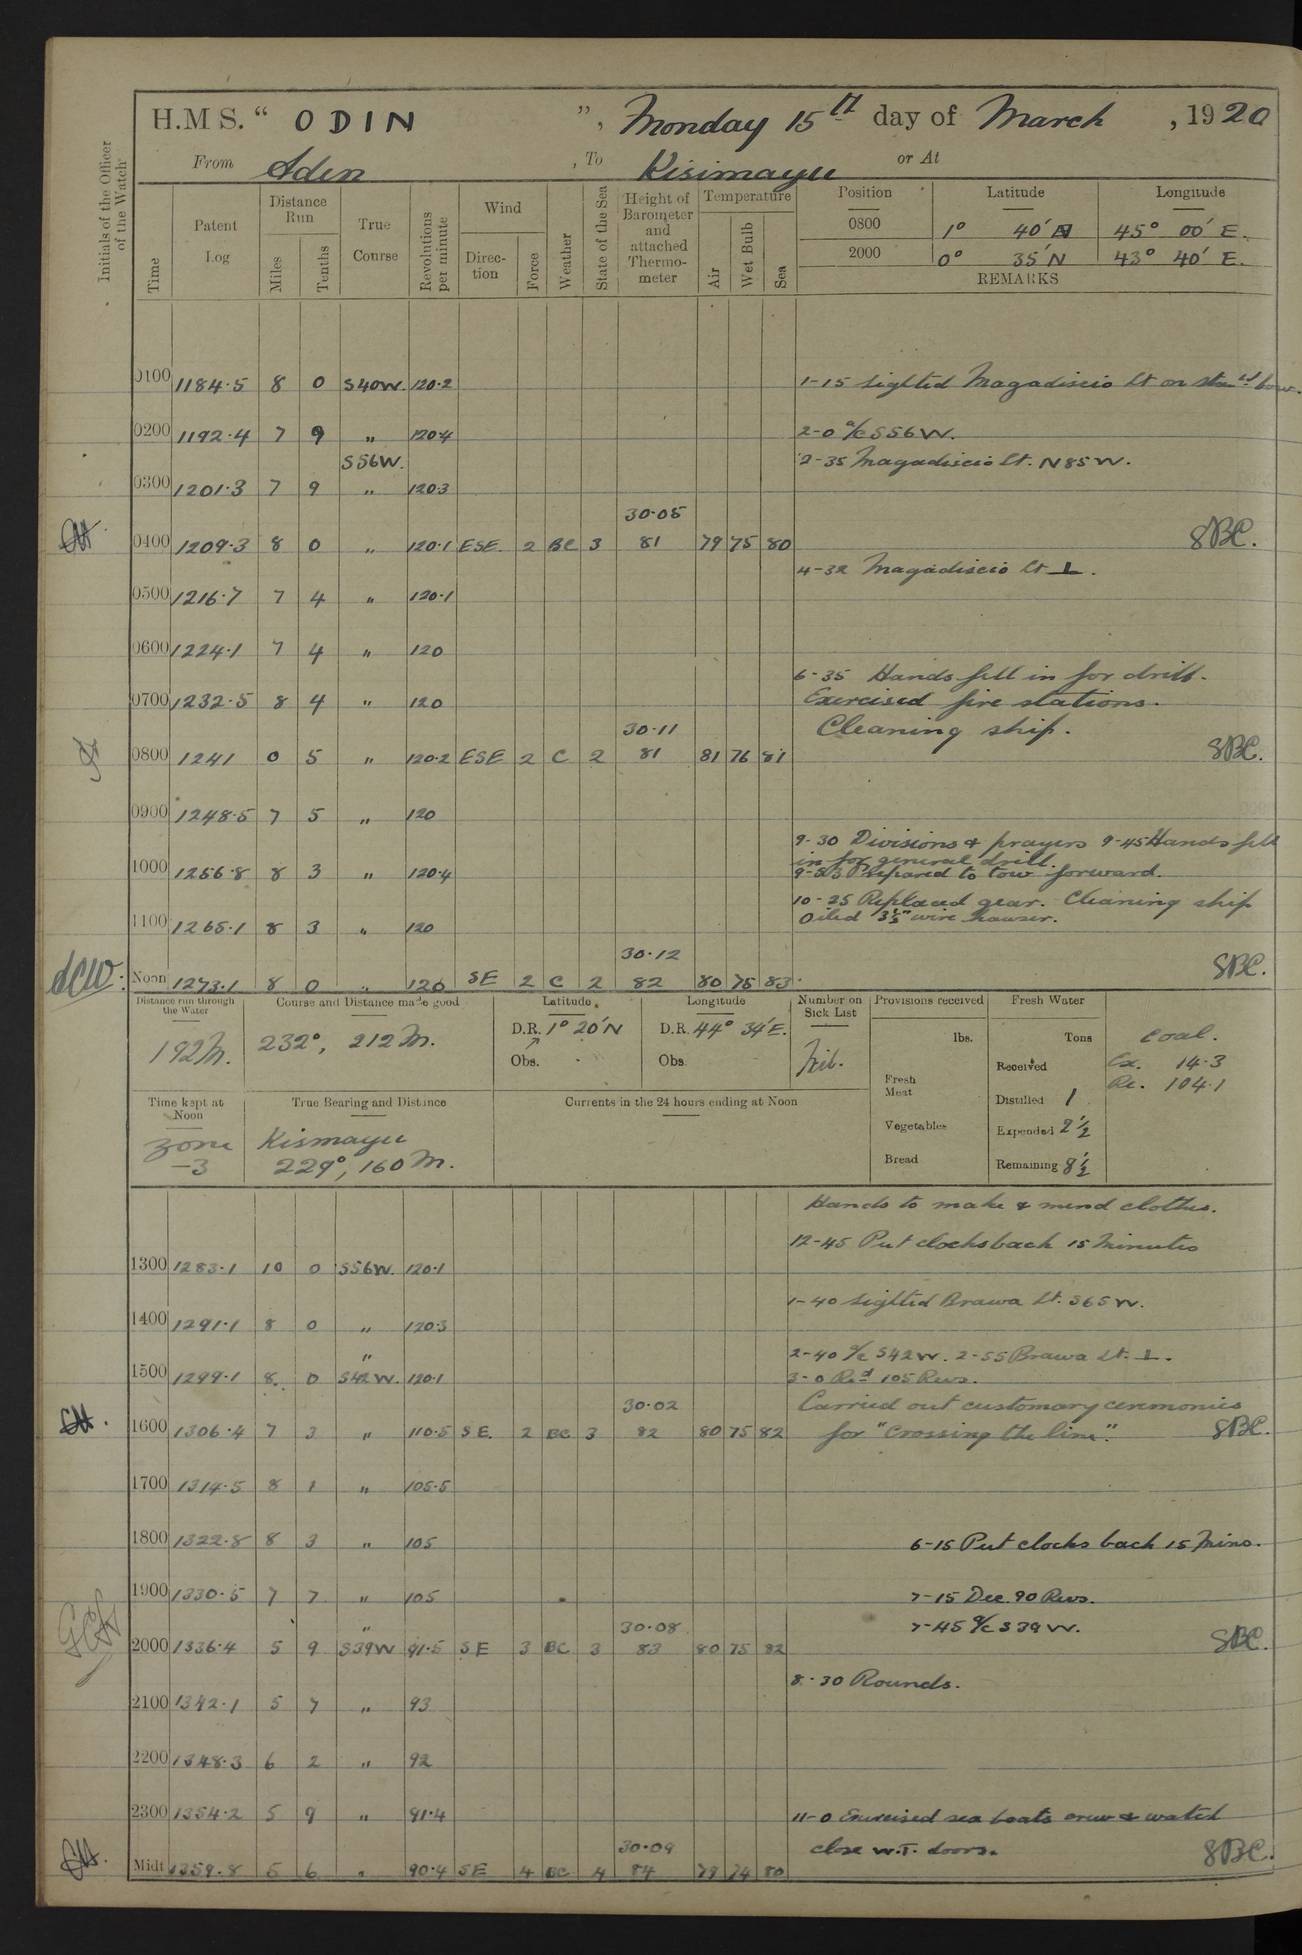 H.M S. “ ODIN ”, Monday 15th day of March , 1920
From Aden , To Kisimayu or At
Initials of the Officer of the Watch
Time Patent Log Distance Run Miles Tenths True Course Revolutions per minute Wind Direction Force Weather State of the Sea Height of Barometer and attached Thermometer Temperature Air Wet Bulb Sea
Position Latitude Longitude
0800 1° 40′ N 45° 00′ E.
2000 0° 35′ N 43° 40′ E.
REMARKS
0100 1184.5 8 0 S40W. 120.2 1-15 Sighted Magadiscio Lt on starbd bow.
0200 1192.4 7 9 " 120.4 2-0 a/c S56W.
S56W. 2-35 Magadiscio Lt. N85W.
0300 1201.3 7 9 " 120.3
30.05
0400 1209.3 8 0 " 120.1 ESE. 2 BC 3 81 79 75 80 SBC.
4-32 Magadiscio Lt ⊥.
0500 1216.7 7 4 " 120.1
0600 1224.1 7 4 " 120
6-35 Hands fell in for drill.
0700 1232.5 8 4 " 120 Exercised fire stations.
30.11 Cleaning ship.
0800 1241 0 5 " 120.2 ESE 2 C 2 81 81 76 81 SBC.
0900 1248.5 7 5 " 120
9-30 Divisions & prayers 9-45 Hands fell
in for general drill.
1000 1256.8 8 3 " 120.4 Prepared to tow forward.
10-25 Replaced gear. Cleaning ship
1100 1265.1 8 3 " 120 Oiled 3½" wire hawser.
30.12
Noon 1273.1 8 0 " 120 SE 2 C 2 82 80 75 83 SBC.
Distance run through the Water
192 M.
Course and Distance made good
232°, 212 M.
Latitude
D.R. 1° 20′ N
Obs. -
Longitude
D.R. 44° 34′ E.
Obs.
Number on Sick List
Nil.
Provisions received
lbs.
Fresh Meat
Vegetables
Bread
Fresh Water
Tons
Received
Distilled 1
Expended 2½
Remaining 8½
Coal.
Ex. 14.3
Re. 104.1
Time kept at Noon
Zone -3
True Bearing and Distance
Kismayu
229°, 160 M.
Currents in the 24 hours ending at Noon
Hands to make & mend clothes.
12-45 Put clocks back 15 Minutes
1300 1283.1 10 0 S56W. 120.1
1-40 Sighted Brawa Lt. S65W.
1400 1291.1 8 0 " 120.3
" 2-40 a/c S42W. 2-55 Brawa Lt. ⊥.
1500 1299.1 8 0 S42W. 120.1 3-0 Red 105 Revs.
30.02 Carried out customary ceremonies
1600 1306.4 7 3 " 110.5 SE. 2 BC 3 82 80 75 82 for "Crossing the line". SBC.
1700 1314.5 8 1 " 105.5
1800 1322.8 8 3 " 105 6-15 Put clocks back 15 Mins.
1900 1330.5 7 7 " 105 7-15 Dec. 90 Revs.
" 30.08 7-45 a/c S39W.
2000 1336.4 5 9 S39W 91.5 SE 3 BC 3 83 80 75 82 SBC.
8-30 Rounds.
2100 1342.1 5 7 " 93
2200 1348.3 6 2 " 92
2300 1354.2 5 9 " 91.4 11-0 Exercised sea boats crew & watch
30.09 close W.T. doors.
Midt 1359.8 5 6 " 90.4 SE 4 BC 4 84 79 74 80 SBC.